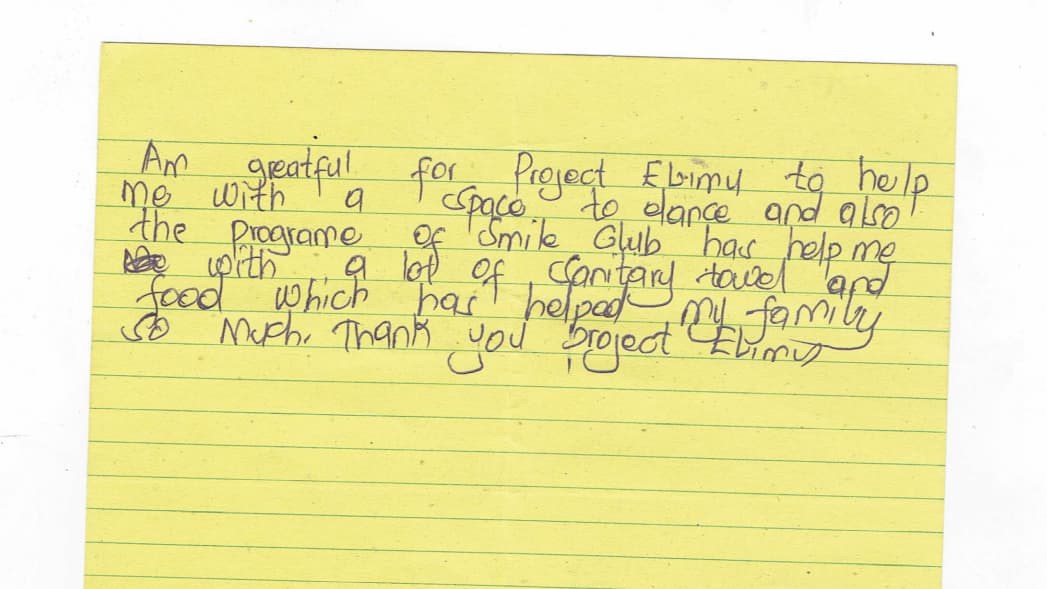 Am greatful for Project Elimu to help
me with a space to dance and also
the programe of Smile Club has help me
with a lot of sanitary towel and
food which has helped my family
so Much. Thank you project Elimu